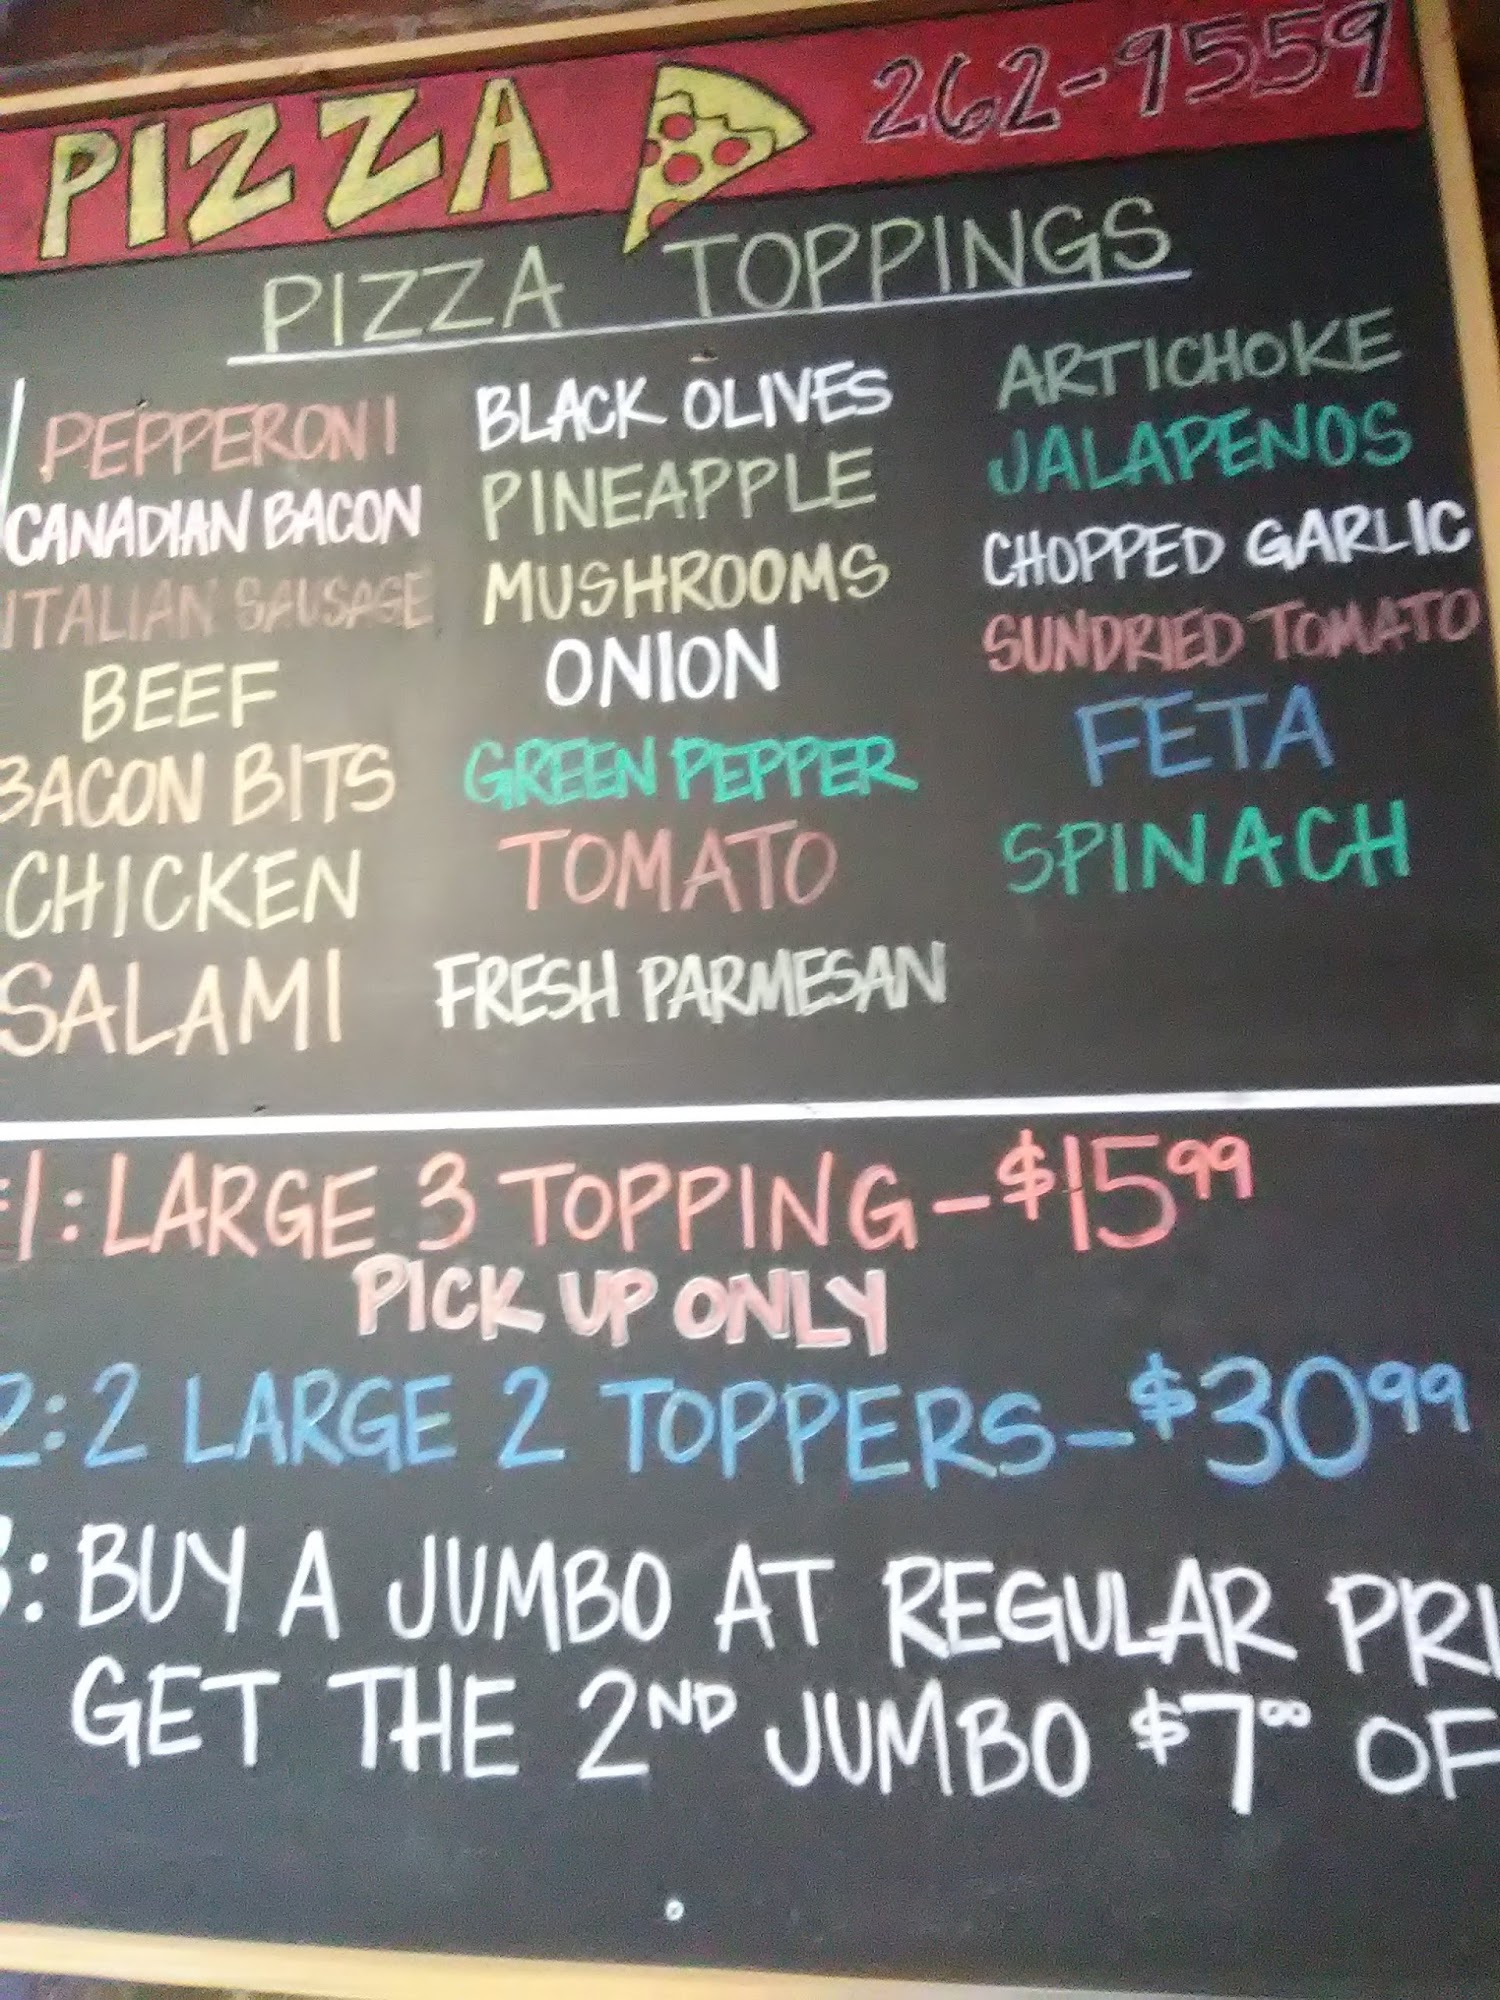 PIZZA 262-9559
PIZZA TOPPINGS
PEPPERONI
CANADIAN BACON
ITALIAN SAUSAGE
BEEF
BACON BITS
CHICKEN
SALAMI
BLACK OLIVES
PINEAPPLE
MUSHROOMS
ONION
GREEN PEPPER
TOMATO
FRESH PARMESAN
ARTICHOKE
JALAPENOS
CHOPPED GARLIC
SUNDRIED TOMATO
FETA
SPINACH
1: LARGE 3 TOPPING-$15.99
PICK UP ONLY
2: 2 LARGE 2 TOPPERS-$30.99
3: BUY A JUMBO AT REGULAR PRI
GET THE 2ND JUMBO $7.00 OF